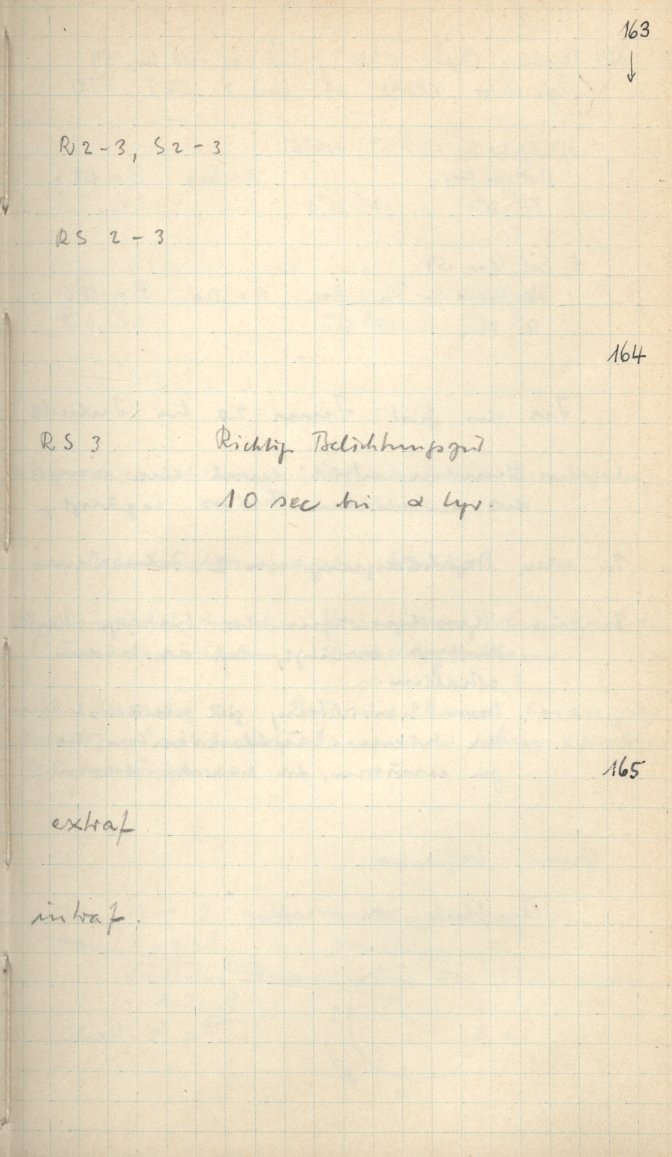 163
↓
R2-3, S2-3
RS 2-3
164
RS 3 Richtig Belichtungszeit
10 sec bei α Lyr
165
extraf
intraf.